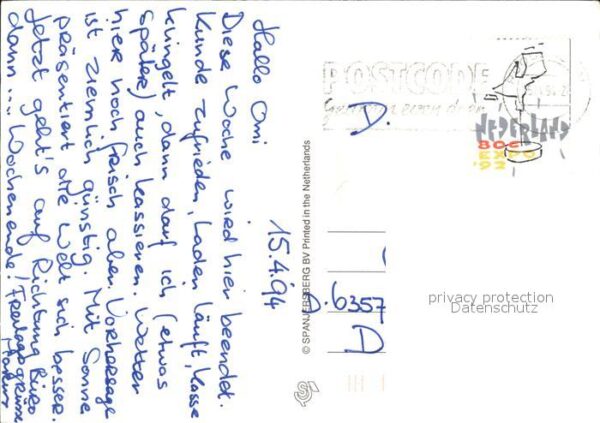 Hallo Omi
15.4.94
Diese Woche wird hier beendet.
Kunde zufrieden, Laden läuft, Kasse
klingelt, dann darf ich (etwas
später) auch kassieren. Wetter
hier noch frisch aber Vorhersage
ist ziemlich günstig. Mit Sonne
präsentiert die Welt sich besser.
Jetzt geht's auf Richtung Büro
dann.... Wochenende! Freitagsgrüsse
© SPANJERSBERG BV Printed in the Netherlands
POSTCODE
NEDERLAND
80c
D.
A-6357
A
privacy protection
Datenschutz